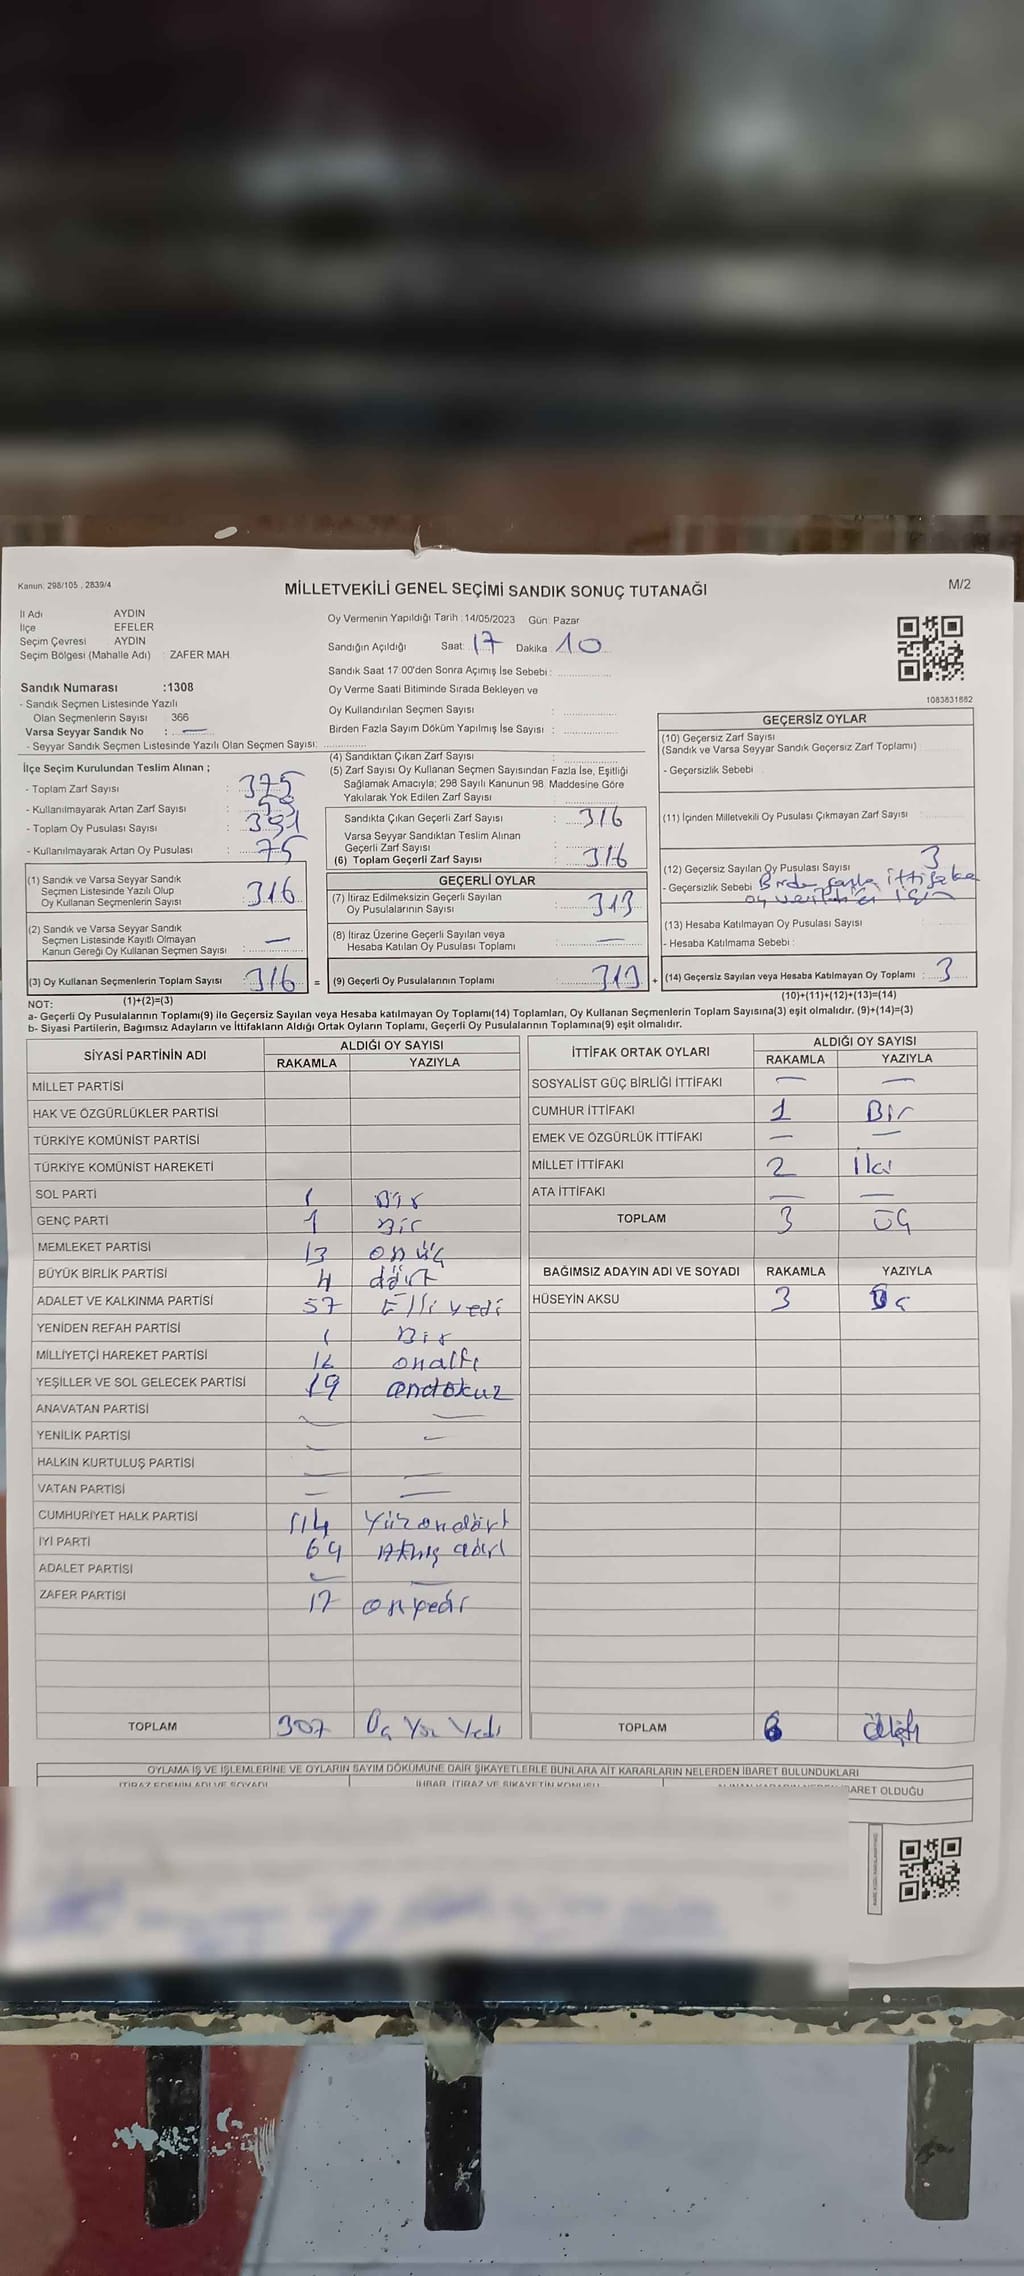 Kanun: 298/105 , 2839/4
MİLLETVEKİLİ GENEL SEÇİMİ SANDIK SONUÇ TUTANAĞI
M/2
İl Adı AYDIN
İlçe EFELER
Seçim Çevresi AYDIN
Seçim Bölgesi (Mahalle Adı) : ZAFER MAH.
Sandık Numarası :1308
- Sandık Seçmen Listesinde Yazılı
Olan Seçmenlerin Sayısı : 366
Varsa Seyyar Sandık No : —
- Seyyar Sandık Seçmen Listesinde Yazılı Olan Seçmen Sayısı:
Oy Vermenin Yapıldığı Tarih : 14/05/2023 Gün: Pazar
Sandığın Açıldığı Saat: 17 Dakika 10
Sandık Saat 17:00'den Sonra Açımış İse Sebebi :
Oy Verme Saati Bitiminde Sırada Bekleyen ve
Oy Kullandırılan Seçmen Sayısı :
Birden Fazla Sayım Döküm Yapılmış İse Sayısı :
1083631662
İlçe Seçim Kurulundan Teslim Alınan ;
- Toplam Zarf Sayısı : 375
- Kullanılmayarak Artan Zarf Sayısı :
- Toplam Oy Pusulası Sayısı : 391
- Kullanılmayarak Artan Oy Pusulası : 75
(1) Sandık ve Varsa Seyyar Sandık
Seçmen Listesinde Yazılı Olup
Oy Kullanan Seçmenlerin Sayısı : 316
(2) Sandık ve Varsa Seyyar Sandık
Seçmen Listesinde Kayıtlı Olmayan
Kanun Gereği Oy Kullanan Seçmen Sayısı : —
(3) Oy Kullanan Seçmenlerin Toplam Sayısı : 316 =
(4) Sandıktan Çıkan Zarf Sayısı :
(5) Zarf Sayısı Oy Kullanan Seçmen Sayısından Fazla İse, Eşitliği
Sağlamak Amacıyla; 298 Sayılı Kanunun 98. Maddesine Göre
Yakılarak Yok Edilen Zarf Sayısı :
Sandıkta Çıkan Geçerli Zarf Sayısı : 316
Varsa Seyyar Sandıktan Teslim Alınan
Geçerli Zarf Sayısı :
(6) Toplam Geçerli Zarf Sayısı : 316
GEÇERLİ OYLAR
(7) İtiraz Edilmeksizin Geçerli Sayılan
Oy Pusulalarının Sayısı : 313
(8) İtiraz Üzerine Geçerli Sayılan veya
Hesaba Katılan Oy Pusulası Toplamı : —
(9) Geçerli Oy Pusulalarının Toplamı : 313 +
GEÇERSİZ OYLAR
(10) Geçersiz Zarf Sayısı
(Sandık ve Varsa Seyyar Sandık Geçersiz Zarf Toplamı) :
- Geçersizlik Sebebi :
(11) İçinden Milletvekili Oy Pusulası Çıkmayan Zarf Sayısı :
(12) Geçersiz Sayılan Oy Pusulası Sayısı : 3
- Geçersizlik Sebebi : Birden fazla ittifaka
oy verildiği için
(13) Hesaba Katılmayan Oy Pusulası Sayısı :
- Hesaba Katılmama Sebebi :
(14) Geçersiz Sayılan veya Hesaba Katılmayan Oy Toplamı : 3
NOT: (1)+(2)=(3) (10)+(11)+(12)+(13)=(14)
a- Geçerli Oy Pusulalarının Toplamı(9) ile Geçersiz Sayılan veya Hesaba Katılmayan Oy Toplamı(14) Toplamları, Oy Kullanan Seçmenlerin Toplam Sayısına(3) eşit olmalıdır. (9)+(14)=(3)
b- Siyasi Partilerin, Bağımsız Adayların ve İttifakların Aldığı Ortak Oyların Toplamı, Geçerli Oy Pusulalarının Toplamına(9) eşit olmalıdır.
SİYASİ PARTİNİN ADI ALDIĞI OY SAYISI
RAKAMLA YAZIYLA
MİLLET PARTİSİ
HAK VE ÖZGÜRLÜKLER PARTİSİ
TÜRKİYE KOMÜNİST PARTİSİ
TÜRKİYE KOMÜNİST HAREKETİ
SOL PARTİ 1 Bir
GENÇ PARTİ 1 Bir
MEMLEKET PARTİSİ 13 onüç
BÜYÜK BİRLİK PARTİSİ 4 dört
ADALET VE KALKINMA PARTİSİ 57 Elli yedi
YENİDEN REFAH PARTİSİ 1 Bir
MİLLİYETÇİ HAREKET PARTİSİ 16 onaltı
YEŞİLLER VE SOL GELECEK PARTİSİ 19 ondokuz
ANAVATAN PARTİSİ — —
YENİLİK PARTİSİ — —
HALKIN KURTULUŞ PARTİSİ — —
VATAN PARTİSİ — —
CUMHURİYET HALK PARTİSİ 114 Yüzondört
İYİ PARTİ 64 Atmış dört
ADALET PARTİSİ — —
ZAFER PARTİSİ 17 onyedi
TOPLAM 307 Üç Yüz Yedi
İTTİFAK ORTAK OYLARI ALDIĞI OY SAYISI
RAKAMLA YAZIYLA
SOSYALİST GÜÇ BİRLİĞİ İTTİFAKI — —
CUMHUR İTTİFAKI 1 Bir
EMEK VE ÖZGÜRLÜK İTTİFAKI — —
MİLLET İTTİFAKI 2 İki
ATA İTTİFAKI — —
TOPLAM 3 ÜÇ
BAĞIMSIZ ADAYIN ADI VE SOYADI RAKAMLA YAZIYLA
HÜSEYİN AKSU 3 Üç
TOPLAM 6 Altı
OYLAMA İŞ VE İŞLEMLERİNE VE OYLARIN SAYIM DÖKÜMÜNE DAİR ŞİKAYETLERLE BUNLARA AİT KARARLARIN NELERDEN İBARET BULUNDUKLARI
İTİRAZ EDENİN ADI VE SOYADI İHBAR, İTİRAZ VE ŞİKAYETİN KONUSU İBARET OLDUĞU